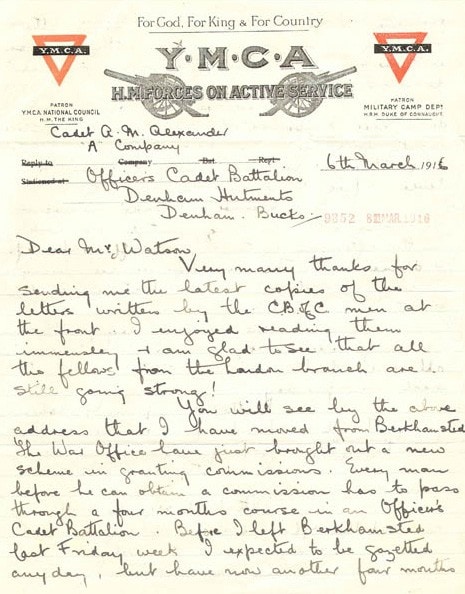 For God, For King & For Country
Y.M.C.A.
Y·M·C·A
Y.M.C.A.
H.M. FORCES ON ACTIVE SERVICE
PATRON
Y.M.C.A. NATIONAL COUNCIL
H.M. THE KING
PATRON
MILITARY CAMP DEPT
H.R.H. DUKE OF CONNAUGHT.
Cadet A. M. Alexander
"A" Company
Reply to Company Bat. Regt.
6th March 1916
Stationed at Officers Cadet Battalion
Denham Hutments
Denham. Bucks
9852 8 MAR. 1916
Dear Mr Watson
Very many thanks for
sending me the latest copies of the
letters written by the C.B. of C. men at
the front. I enjoyed reading them
immensley & am glad to see that all
the fellows from the London branch are
still going strong!
You will see by the above
address that I have moved from Berkhamsted
The War Office have just brought out a new
scheme in granting commissions. Every man
before he can obtain a commission has to pass
through a four months course in an Officer's
Cadet Battalion. Before I left Berkhamsted
last Friday week I expected to be gazetted
any day, but have now another four months